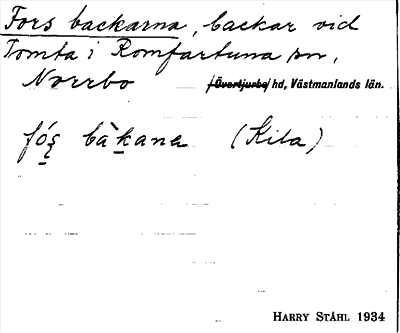 Fors backarna, backar vid
Tomta i Romfartuna sn,
Norrbo /Övertjurbo/ hd, Västmanlands län.
fóş bàkana (Kila)
HARRY STÅHL 1934